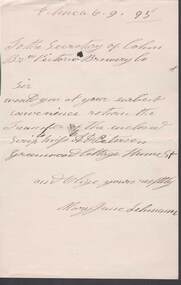 6. 9. 95
To the Secretary of Cohn
Bros Victoria Brewery Co
Sir
would you at your earliest
convenience return the
Transfer of the enclosed
Scrip
Greenwood Cottage
and Oblige yours
Mary Jane Lehmann